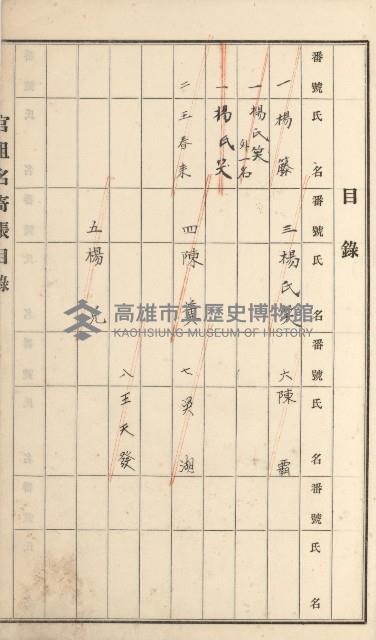 目錄
番號 氏名
番號 氏名
番號 氏名
番號 氏名
一 楊籐
一 楊氏笑
外一名
一 楊氏笑
二 王春來
三 楊氏笑
四 陳
五 楊
六 陳霸
七 吳湖
八 王天發
官租名寄帳目錄
高雄市立歷史博物館
KAOHSIUNG MUSEUM OF HISTORY